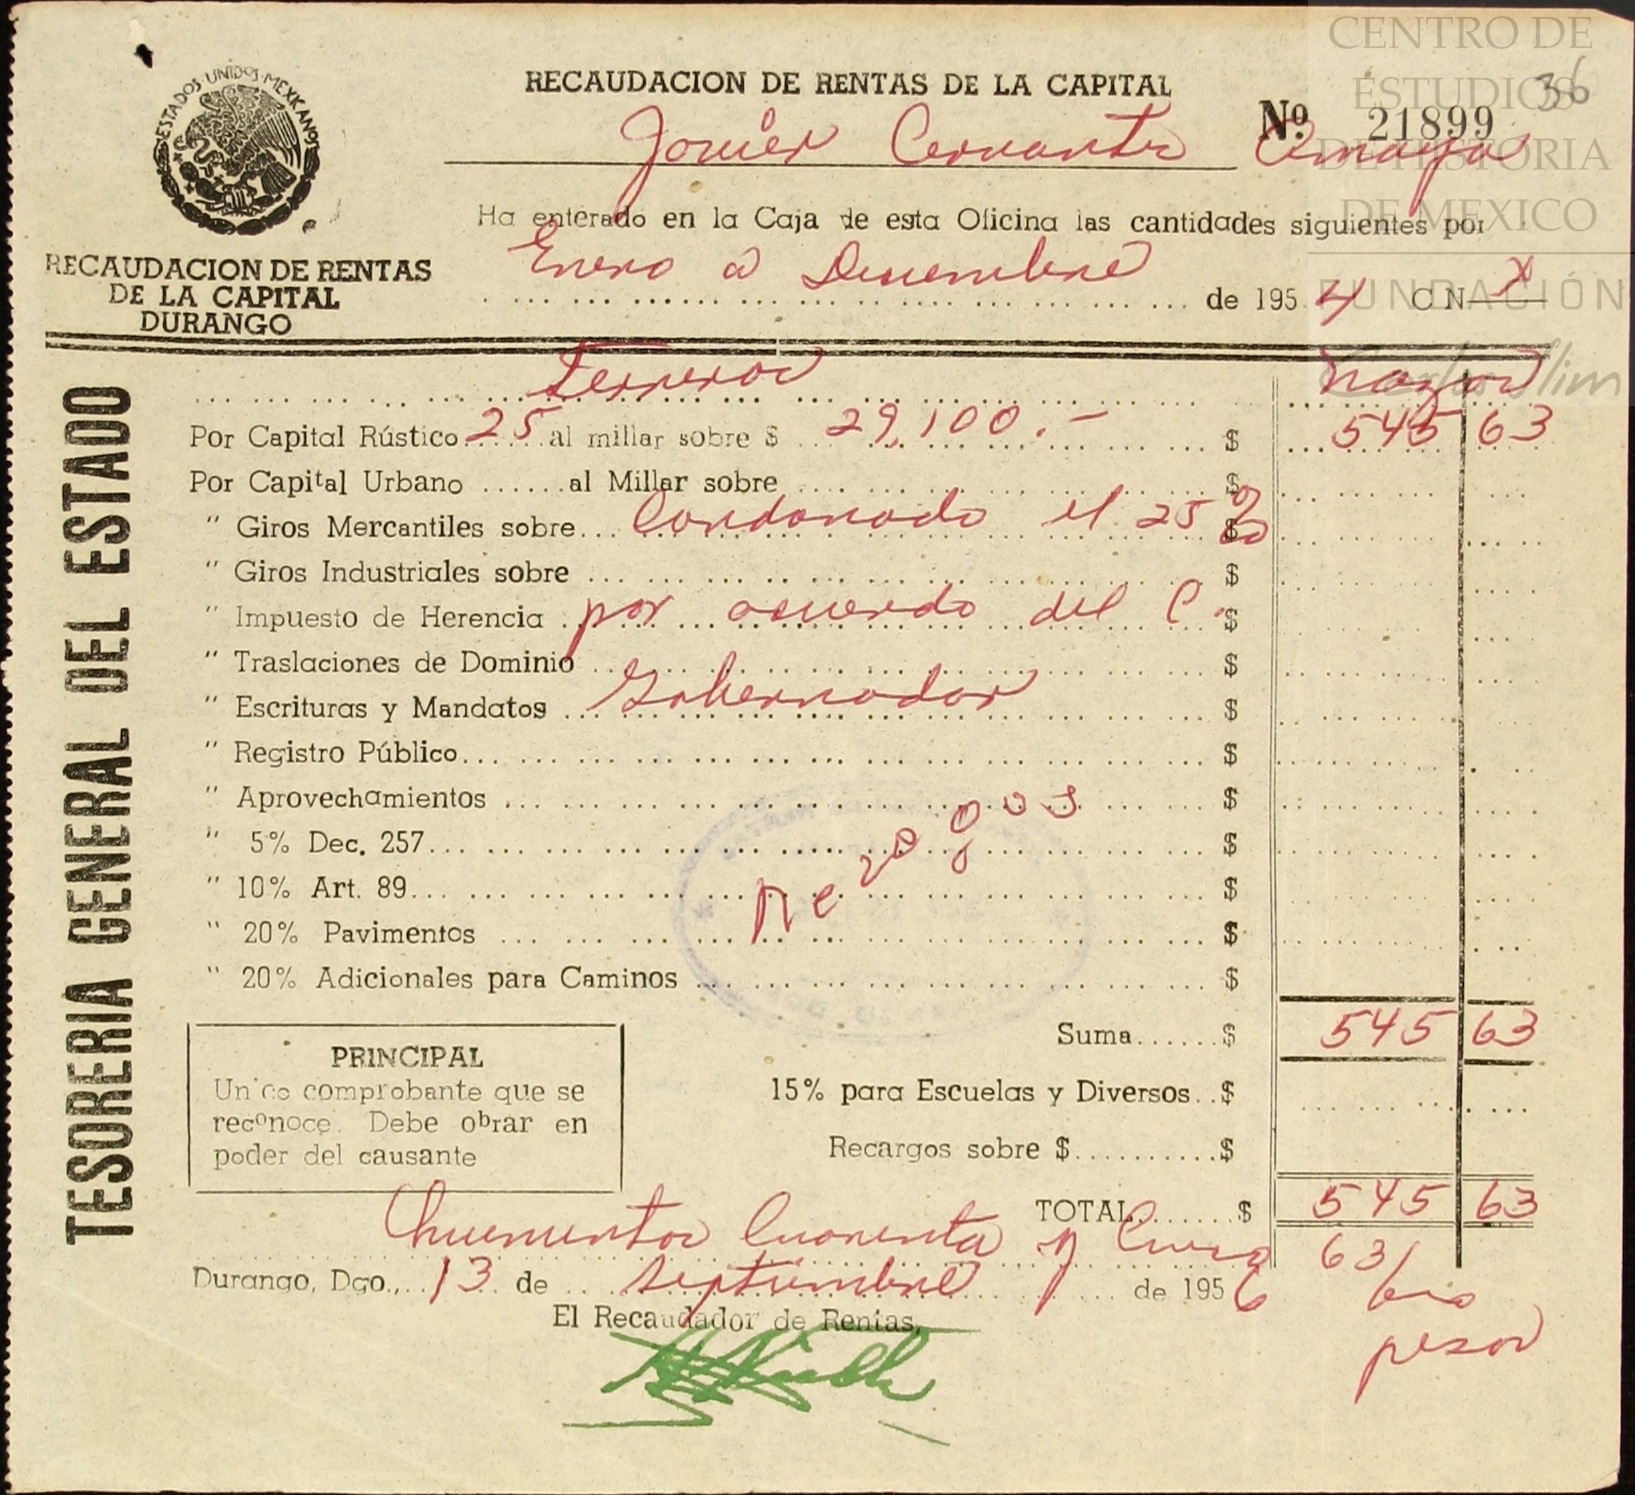 CENTRO DE
ESTUDIOS
DE HISTORIA
DE MEXICO
FUNDACIÓN
Carlos Slim
36
ESTADOS UNIDOS MEXICANOS
RECAUDACION DE RENTAS DE LA CAPITAL
Nº 21899
Javier Cervantes Amaya
Ha enterado en la Caja de esta Oficina las cantidades siguientes por
Enero a Diciembre
de 195 4 C N X
RECAUDACION DE RENTAS
DE LA CAPITAL
DURANGO
TESORERIA GENERAL DEL ESTADO
Por Capital Rústico 25 al millar sobre $ 29,100.- $ 545 63
Por Capital Urbano ......al Millar sobre $
" Giros Mercantiles sobre... Condonado el 25 % $
" Giros Industriales sobre ... $
" Impuesto de Herencia . por acuerdo del C. $
" Traslaciones de Dominio ... $
" Escrituras y Mandatos ... Gobernador $
" Registro Público... $
" Aprovechamientos ... $
" 5% Dec. 257... $
" 10% Art. 89... $
" 20% Pavimentos ... $
" 20% Adicionales para Caminos ... $
Rezagos
Suma......$ 545 63
PRINCIPAL
Unico comprobante que se
reconoce. Debe obrar en
poder del causante
15% para Escuelas y Diversos..$
Recargos sobre $..........$
TOTAL.......$ 545 63
Quinientos Cuarenta y Cinco 63/
pesos
Durango, Dgo., 13 de septiembre de 195 6
El Recaudador de Rentas,